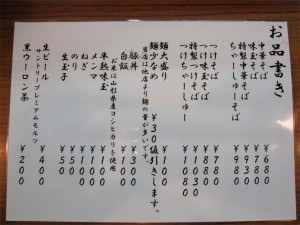 お品書き
中華そば ¥680
味玉そば ¥780
特製中華そば ¥980
ちゃーしゅーそば ¥930
つけそば ¥780
味玉つけそば ¥880
特製つけそば ¥1080
つけちゃーしゅー ¥1030
麺大盛り ¥100
麺少なめ ¥30値引きします。
当店は他店より麺の量が多いです。
豚丼 ¥300
白飯 ¥100
お米は山形県産コシヒカリを使用
半熟味玉 ¥100
メンマ ¥100
ねぎ ¥100
のり ¥50
生玉子 ¥50
生ビール ¥400
サントリープレミアムモルツ
黒ウーロン茶 ¥200